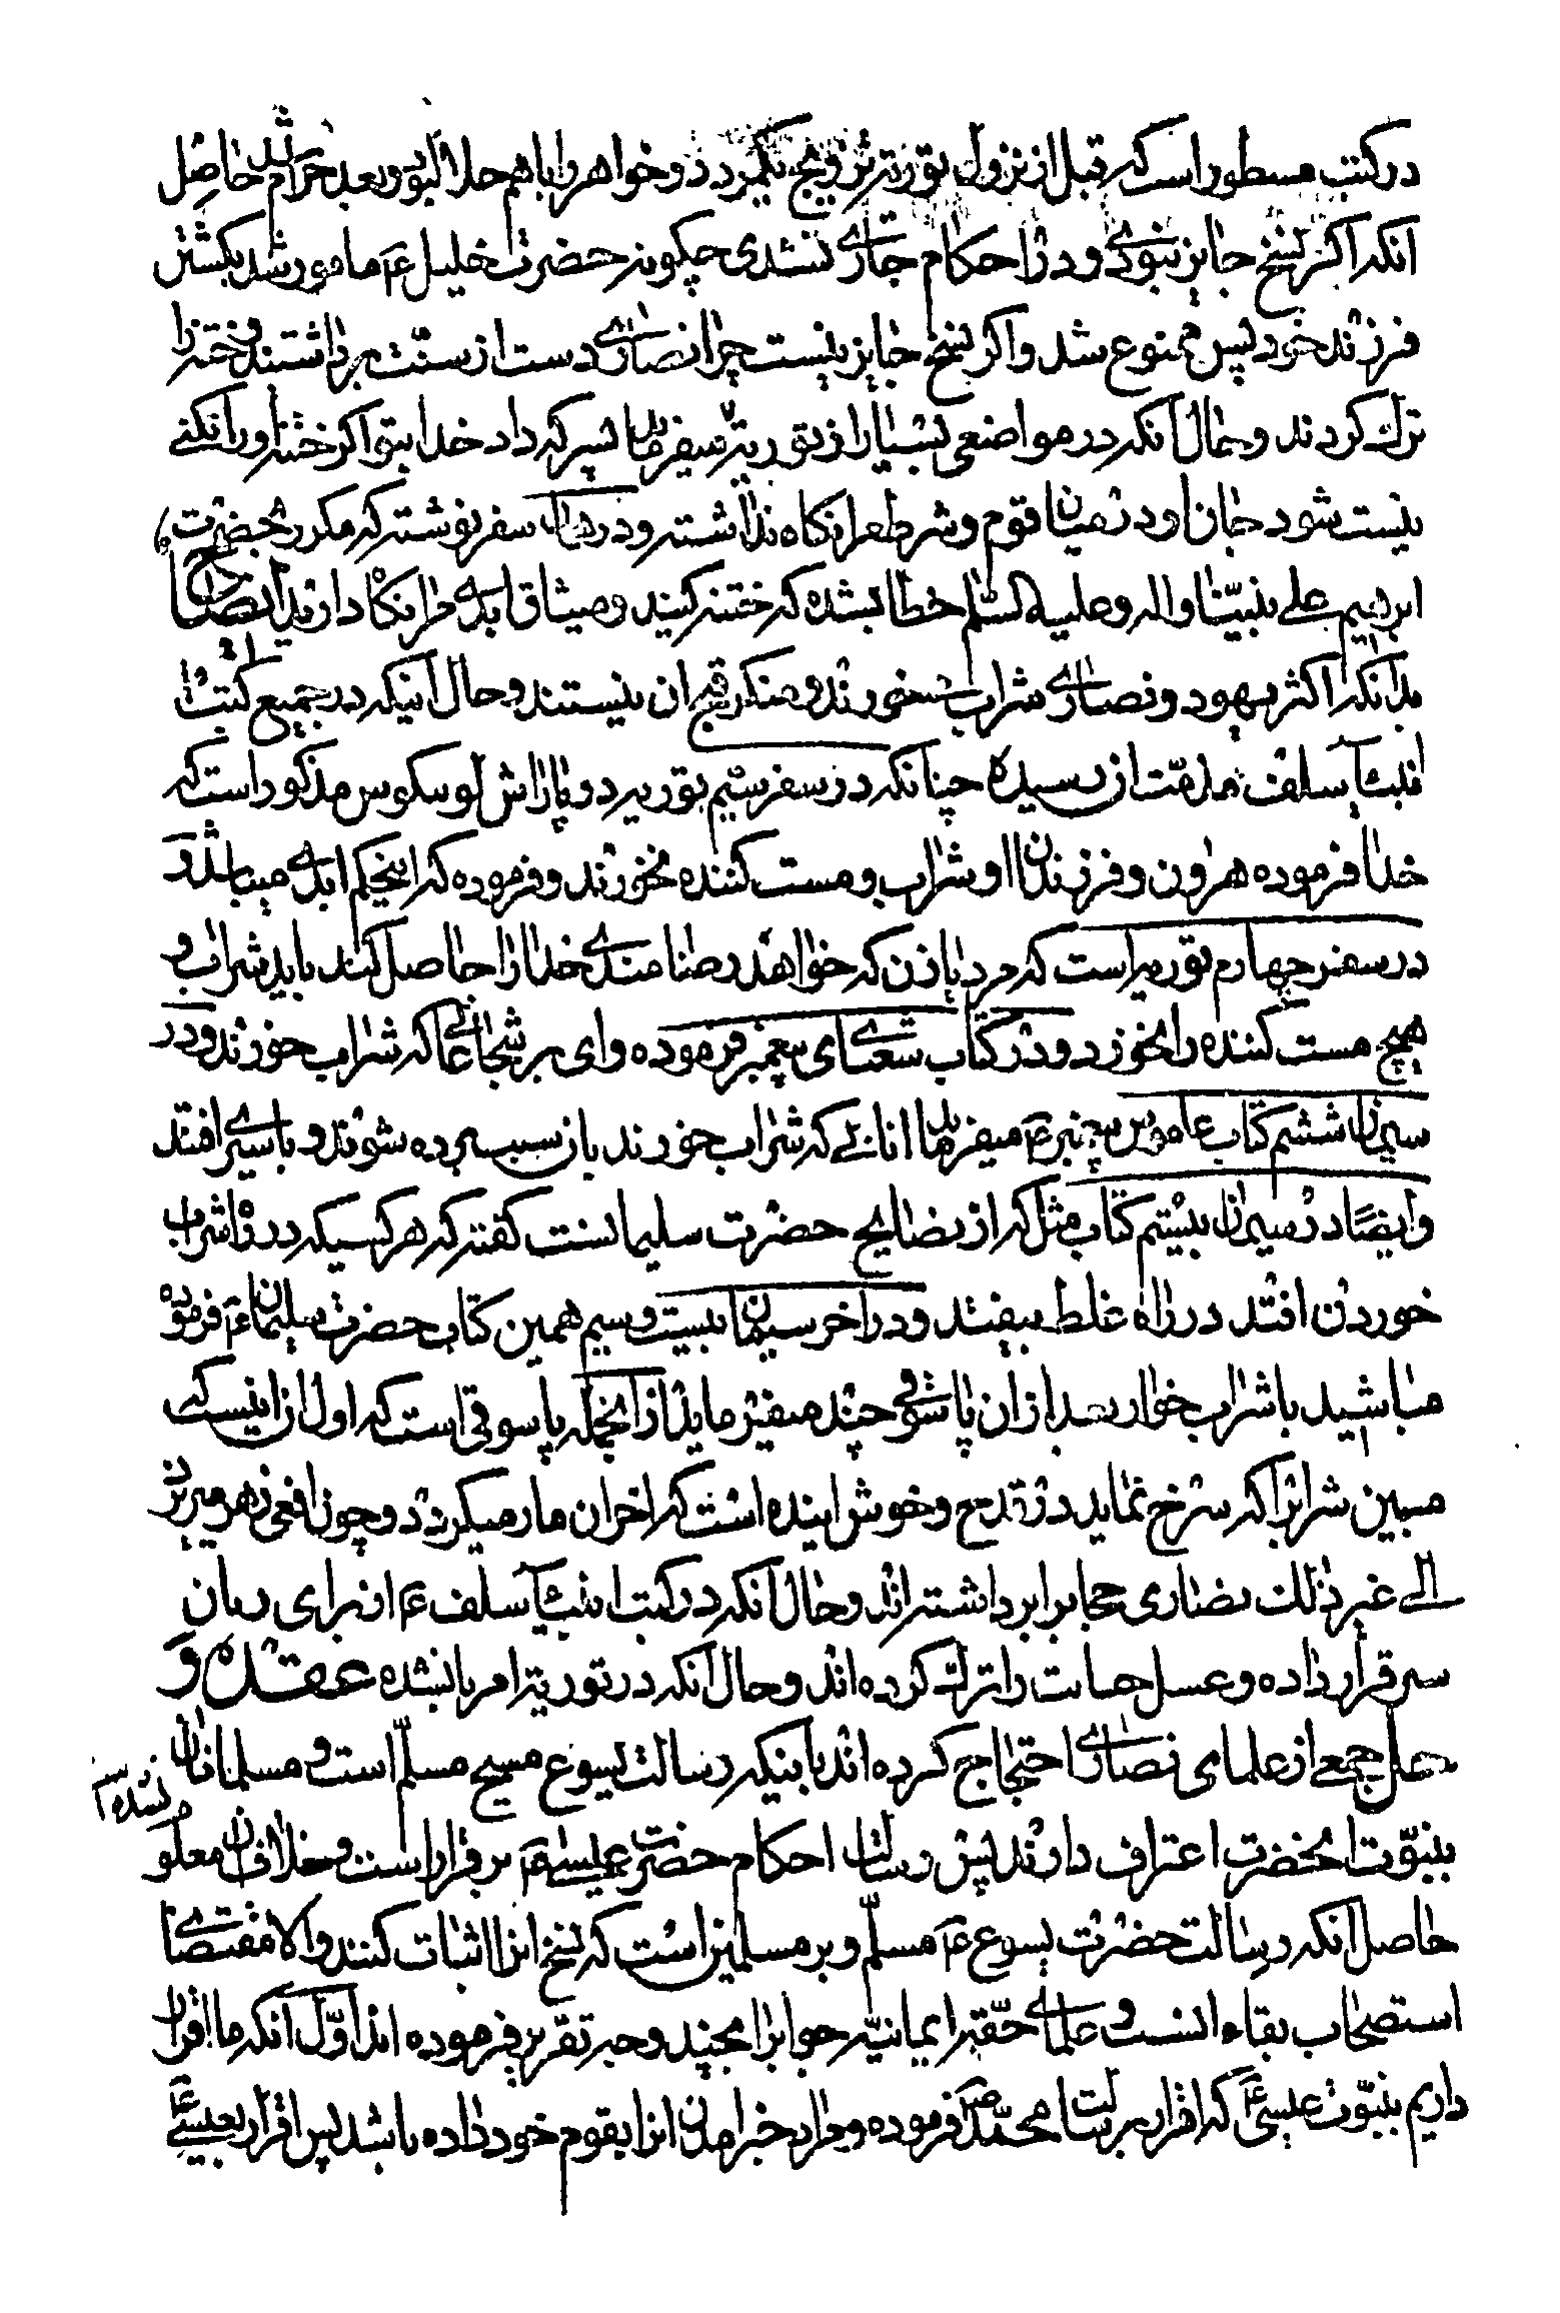 در کتب مسطور است که قبل از نزول توریة تزویج یکمرد دو خواهر را باهم حلال بود و بعد حرام شد حاصل
انکه اکر نسخ جایز نبودی و در احکام جاری نشدی چکونه حضرت خلیل ع مامور شد بکشتن
فرزند خود پس ممنوع شد و اکر نسخ جایز نیست چرا نصاری دست از سنت برداشتند و ختنه را
ترک کردند و حال آنکه در مواضعی بسیار از توریة میفرماید پسر که داد خدا بتو اکر ختنه او را نکنی
نیست شود جان او در میان قوم و شرط مرا نکاه نداشته و در همان سفر نوشته که مکرر بحضرت
ابرهیم علی نبینا واله وعلیه السلم خطاب شده که ختنه کنید و میثاق ابدی مرا نکاه دارید ایضا
بدانکه اکثر یهود و نصاری شراب میخورند و منکر قبح ان نیستند و حال اینکه در جمیع کتب
انبیآء سلف مذمت ان رسیده چنانکه در سفر سیم توریه در پاراش لوسکوس مذکور است که
خدا فرموده هرون و فرزندان او شراب و مست کننده نخورند و فرموده که اینحکم ابدی میباشد و
در سفر چهارم توریه است که مرد یا زن که خواهد رضامندی خدا را حاصل کند باید شراب و
هیچ مست کننده را نخورد و در کتاب شعیای پیغمبر فرموده وای بر شجاعانی که شراب خورند و در
سیمان ششم کتاب عاموس پیغمبر ع میفرماید انانی که شراب خورند بان سبب برده شوند و باسیری افتند
وایضا در سیمان بیستم کتاب مثل که از نصایح حضرت سلیمانست کفته که هر کسیکه در راه شراب
خوردن افتد در راه غلط بیفتد و در اخر سیمان بیست و سیم همین کتاب حضرت سلیمان ع فرموده
مباشید با شراب خوار بعد از ان پاسوقی چند میفرماید از انجمله پاسوقی است که اول ان اینست که
مبین شراب را که سرخ نماید در قدح و خوش اینده است که اخر ان مار میکزد و چون افعی زهر میریزد
الی غیر ذلک نصاری حجاب را برداشته اند و حال آنکه در کتب انبیآء سلف ع از برای زنان
ستر قرار داده و غسل جنابت را ترک کرده اند و حال آنکه در توریة امر بان شده عقده و
حل جمعی از علمای نصاری احتجاج کرده اند باینکه رسالت یسوع مسیح مسلم است و مسلمانان
بنبوت انحضرت اعتراف دارند پس رسالت احکام حضرت عیسی ع برقرار است و خلاف ان معلوم
نشده
حاصل آنکه رسالت حضرت یسوع ع مسلم و بر مسلمین است که نسخ انرا اثبات کنند والا مقتضای
استصحاب بقاء انست و علمای حقه ایمانیه جواب را بچند وجه تقریر فرموده اند اول آنکه ما اقرار
داریم بنبوت عیسی ع که اقرار برسالت محمد ص فرموده و مراد خبر امدن انرا بقوم خود داده باشد پس اقرار بعیسی ع